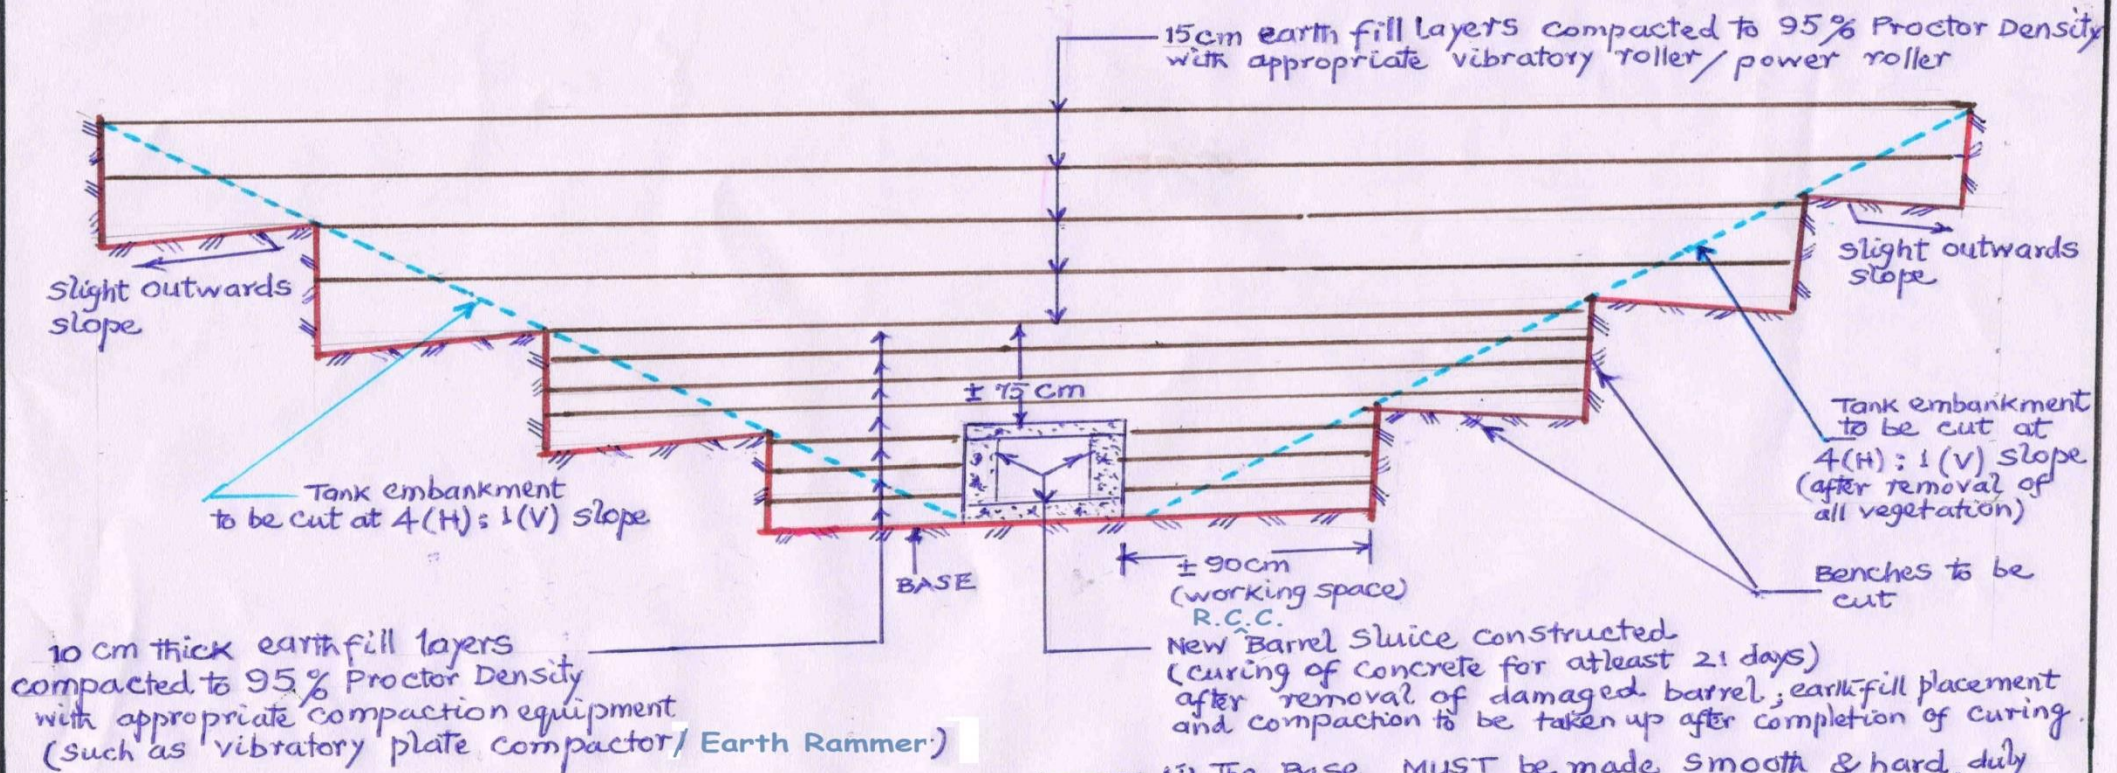 15cm earth fill layers compacted to 95% Proctor Density
with appropriate vibratory roller/power roller
slight outwards
slope
slight outwards
slope
± 75 cm
Tank embankment
to be cut at 4(H):1(V) slope
Tank embankment
to be cut at
4(H):1(V) slope
(after removal of
all vegetation)
BASE
± 90cm
(working space)
Benches to be
cut
10 cm thick earthfill layers
compacted to 95% Proctor Density
with appropriate compaction equipment
(such as vibratory plate compactor/ Earth Rammer.)
R.C.C.
New ^ Barrel Sluice constructed
(curing of concrete for atleast 21 days)
after removal of damaged barrel; earth-fill placement
and compaction to be taken up after completion of curing.
The Base MUST be made smooth & hard, duly